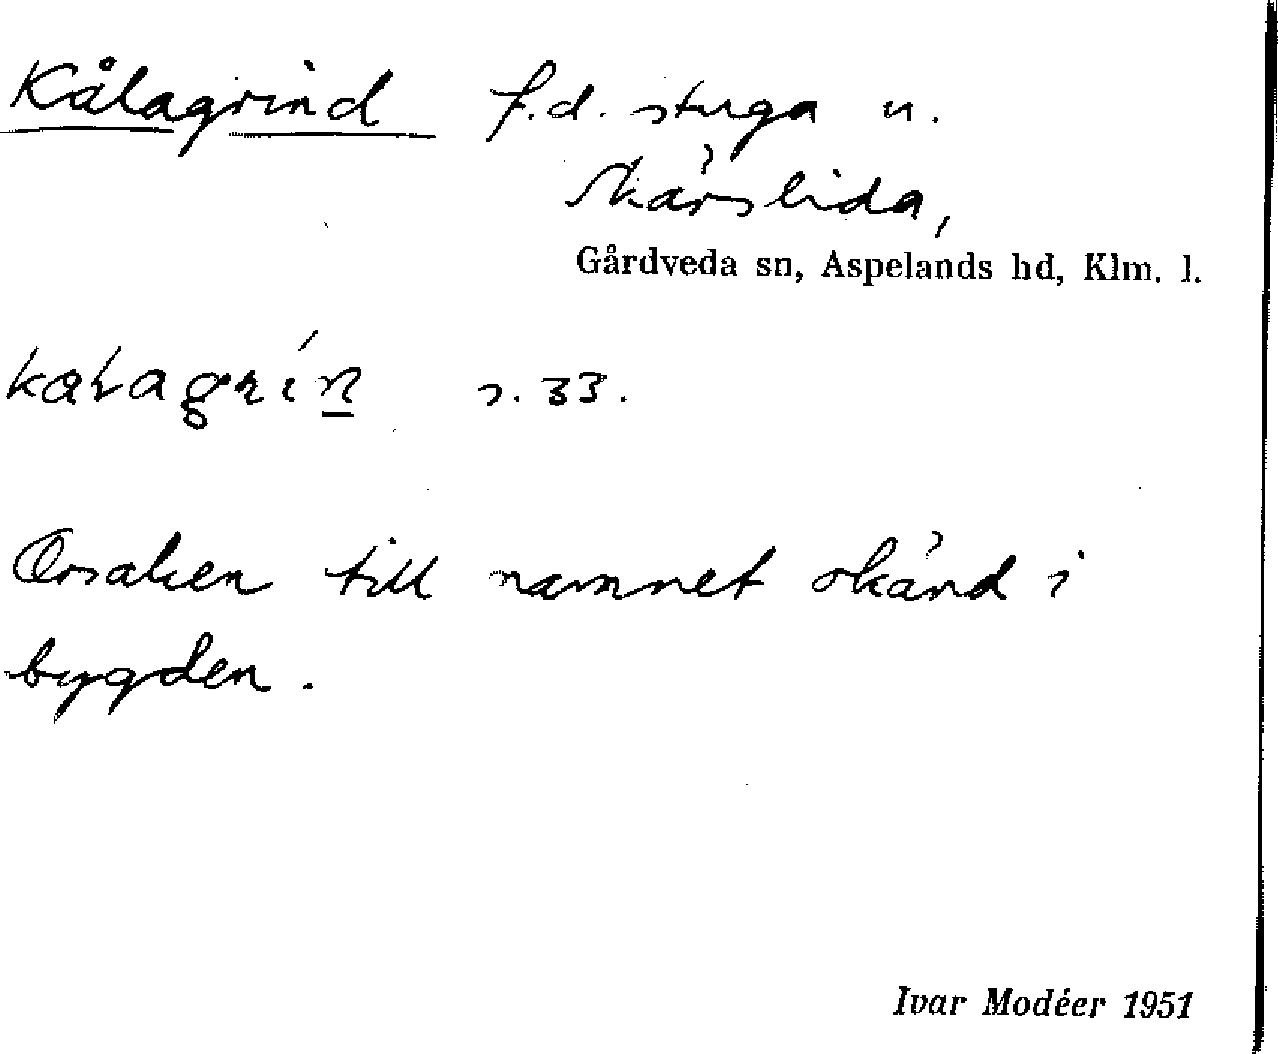 Kålagrind f.d. stuga u.
Skärslida,
Gårdveda sn, Aspelands hd, Klm. l.
s. 33.
Orsaken till namnet okänd i
bygden.
Ivar Modéer 1951